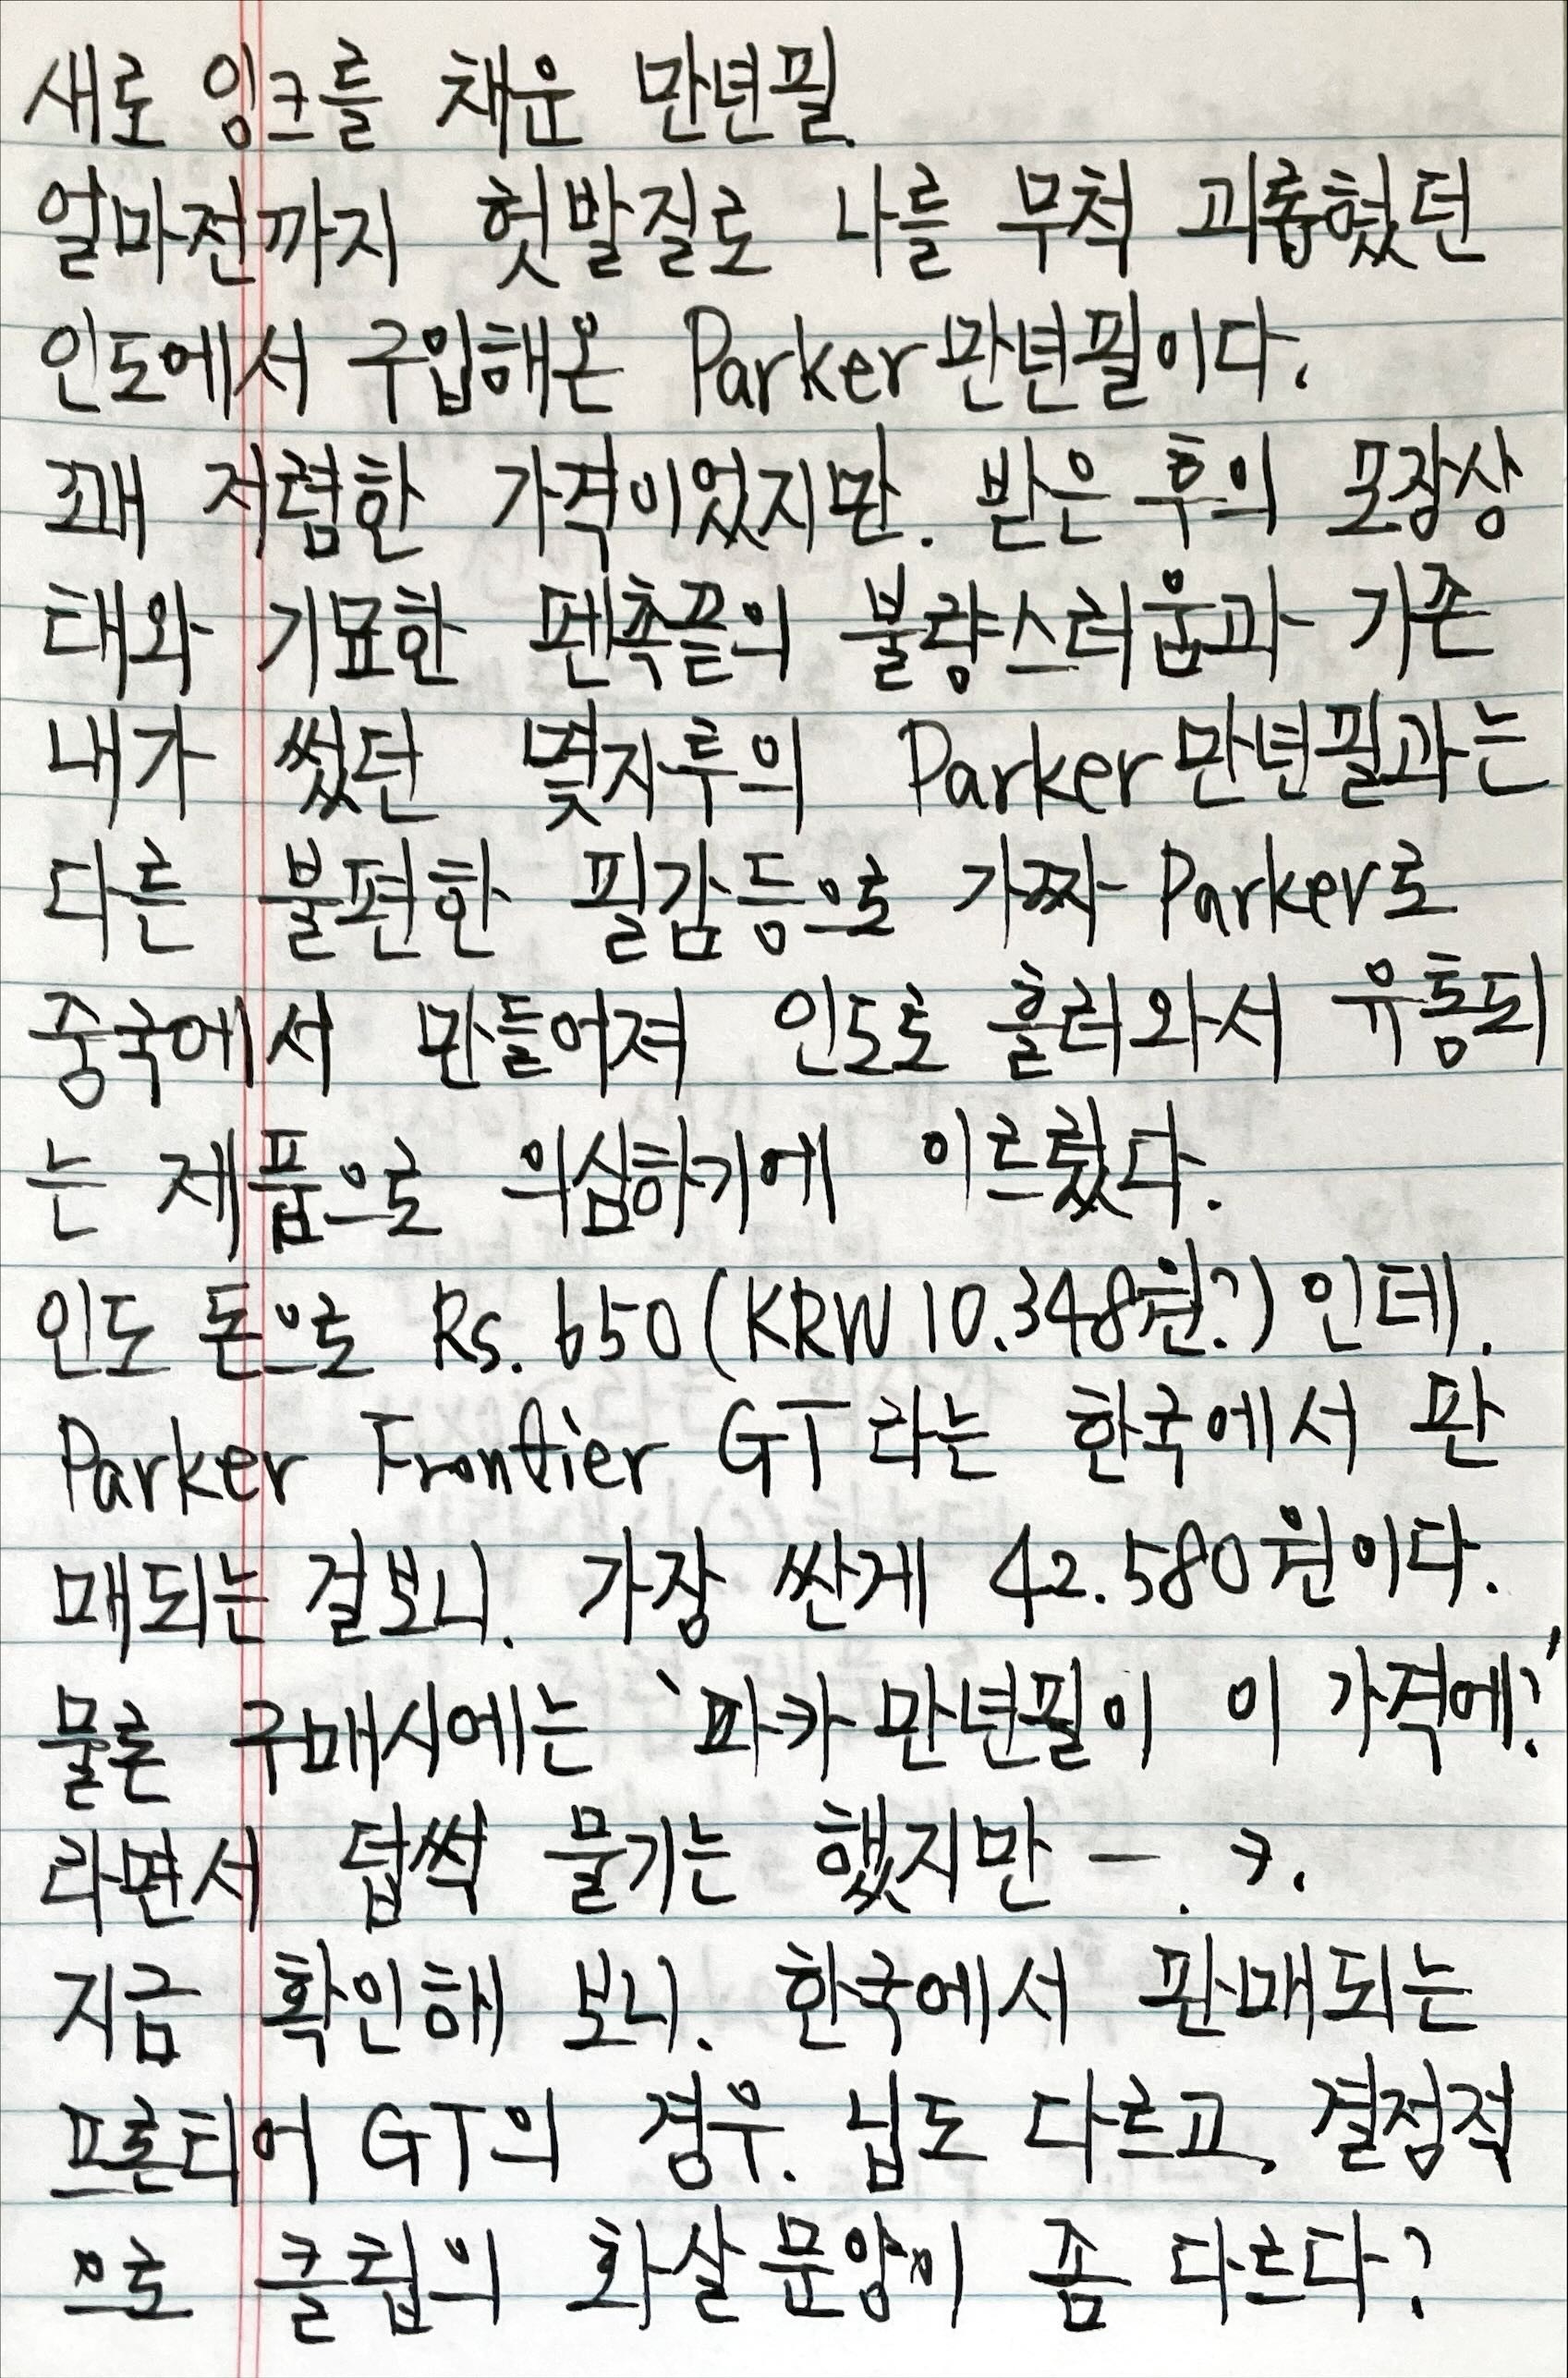 새로 잉크를 채운 만년필.
얼마전까지 헛발질로 나를 무척 괴롭혔던
인도에서 구입해온 Parker 만년필이다.
꽤 저렴한 가격이었지만. 받은 후의 포장상
태와 기묘한 펜촉끝의 불량스러움과 기존
내가 썼던 몇자루의 Parker 만년필과는
다른 불편한 필감등으로 가짜 Parker로
중국에서 만들어져 인도로 흘러와서 유통되
는 제품으로 의심하기에 이르렀다.
인도 돈으로 Rs. 650 (KRW 10.348원?) 인데.
Parker Frontier GT라는 한국에서 판
매되는 걸보니. 가장 싼게 42.580원이다.
물론 구매시에는 '파카 만년필이 이 가격에?'
라면서 덥썩 물기는 했지만 —. ㅋ.
지금 확인해 보니. 한국에서 판매되는
프론티어 GT의 경우. 닙도 다르고. 결정적
으로 클립의 화살문양이 좀 다르다?